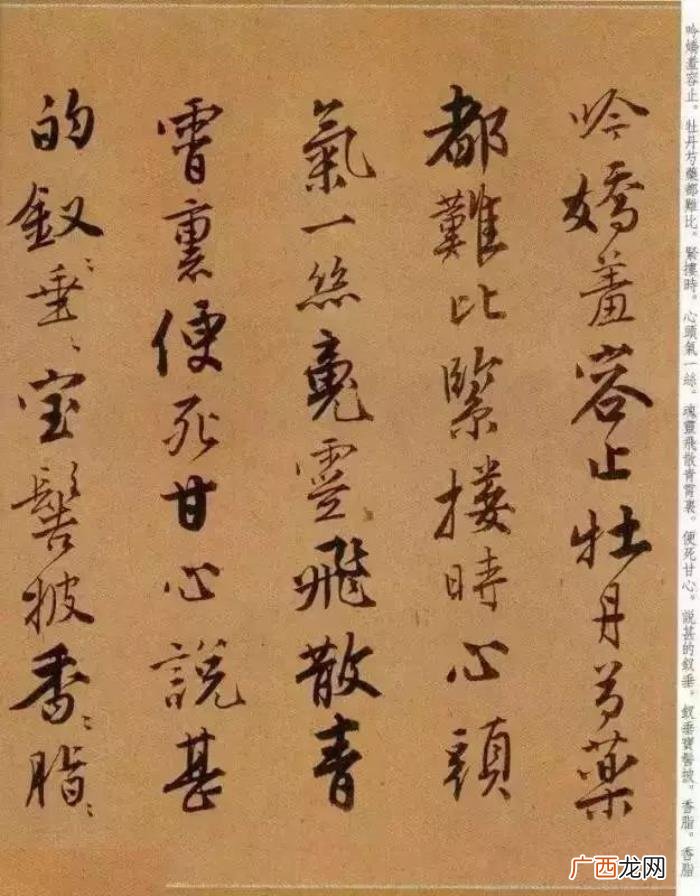 吟嬌羞容止。牡丹芍藥都難比。緊摟時。心頭氣一絲。魂靈飛散青霄裏。便死甘心。說甚的釵垂。釵垂寶髻披。香脂。香脂
吟嬌羞容止牡丹芍藥
都難比緊摟時心頭
氣一絲魂靈飛散青
霄裏便死甘心說甚
的釵〻垂〻宝髻披香〻脂〻
广西龙网